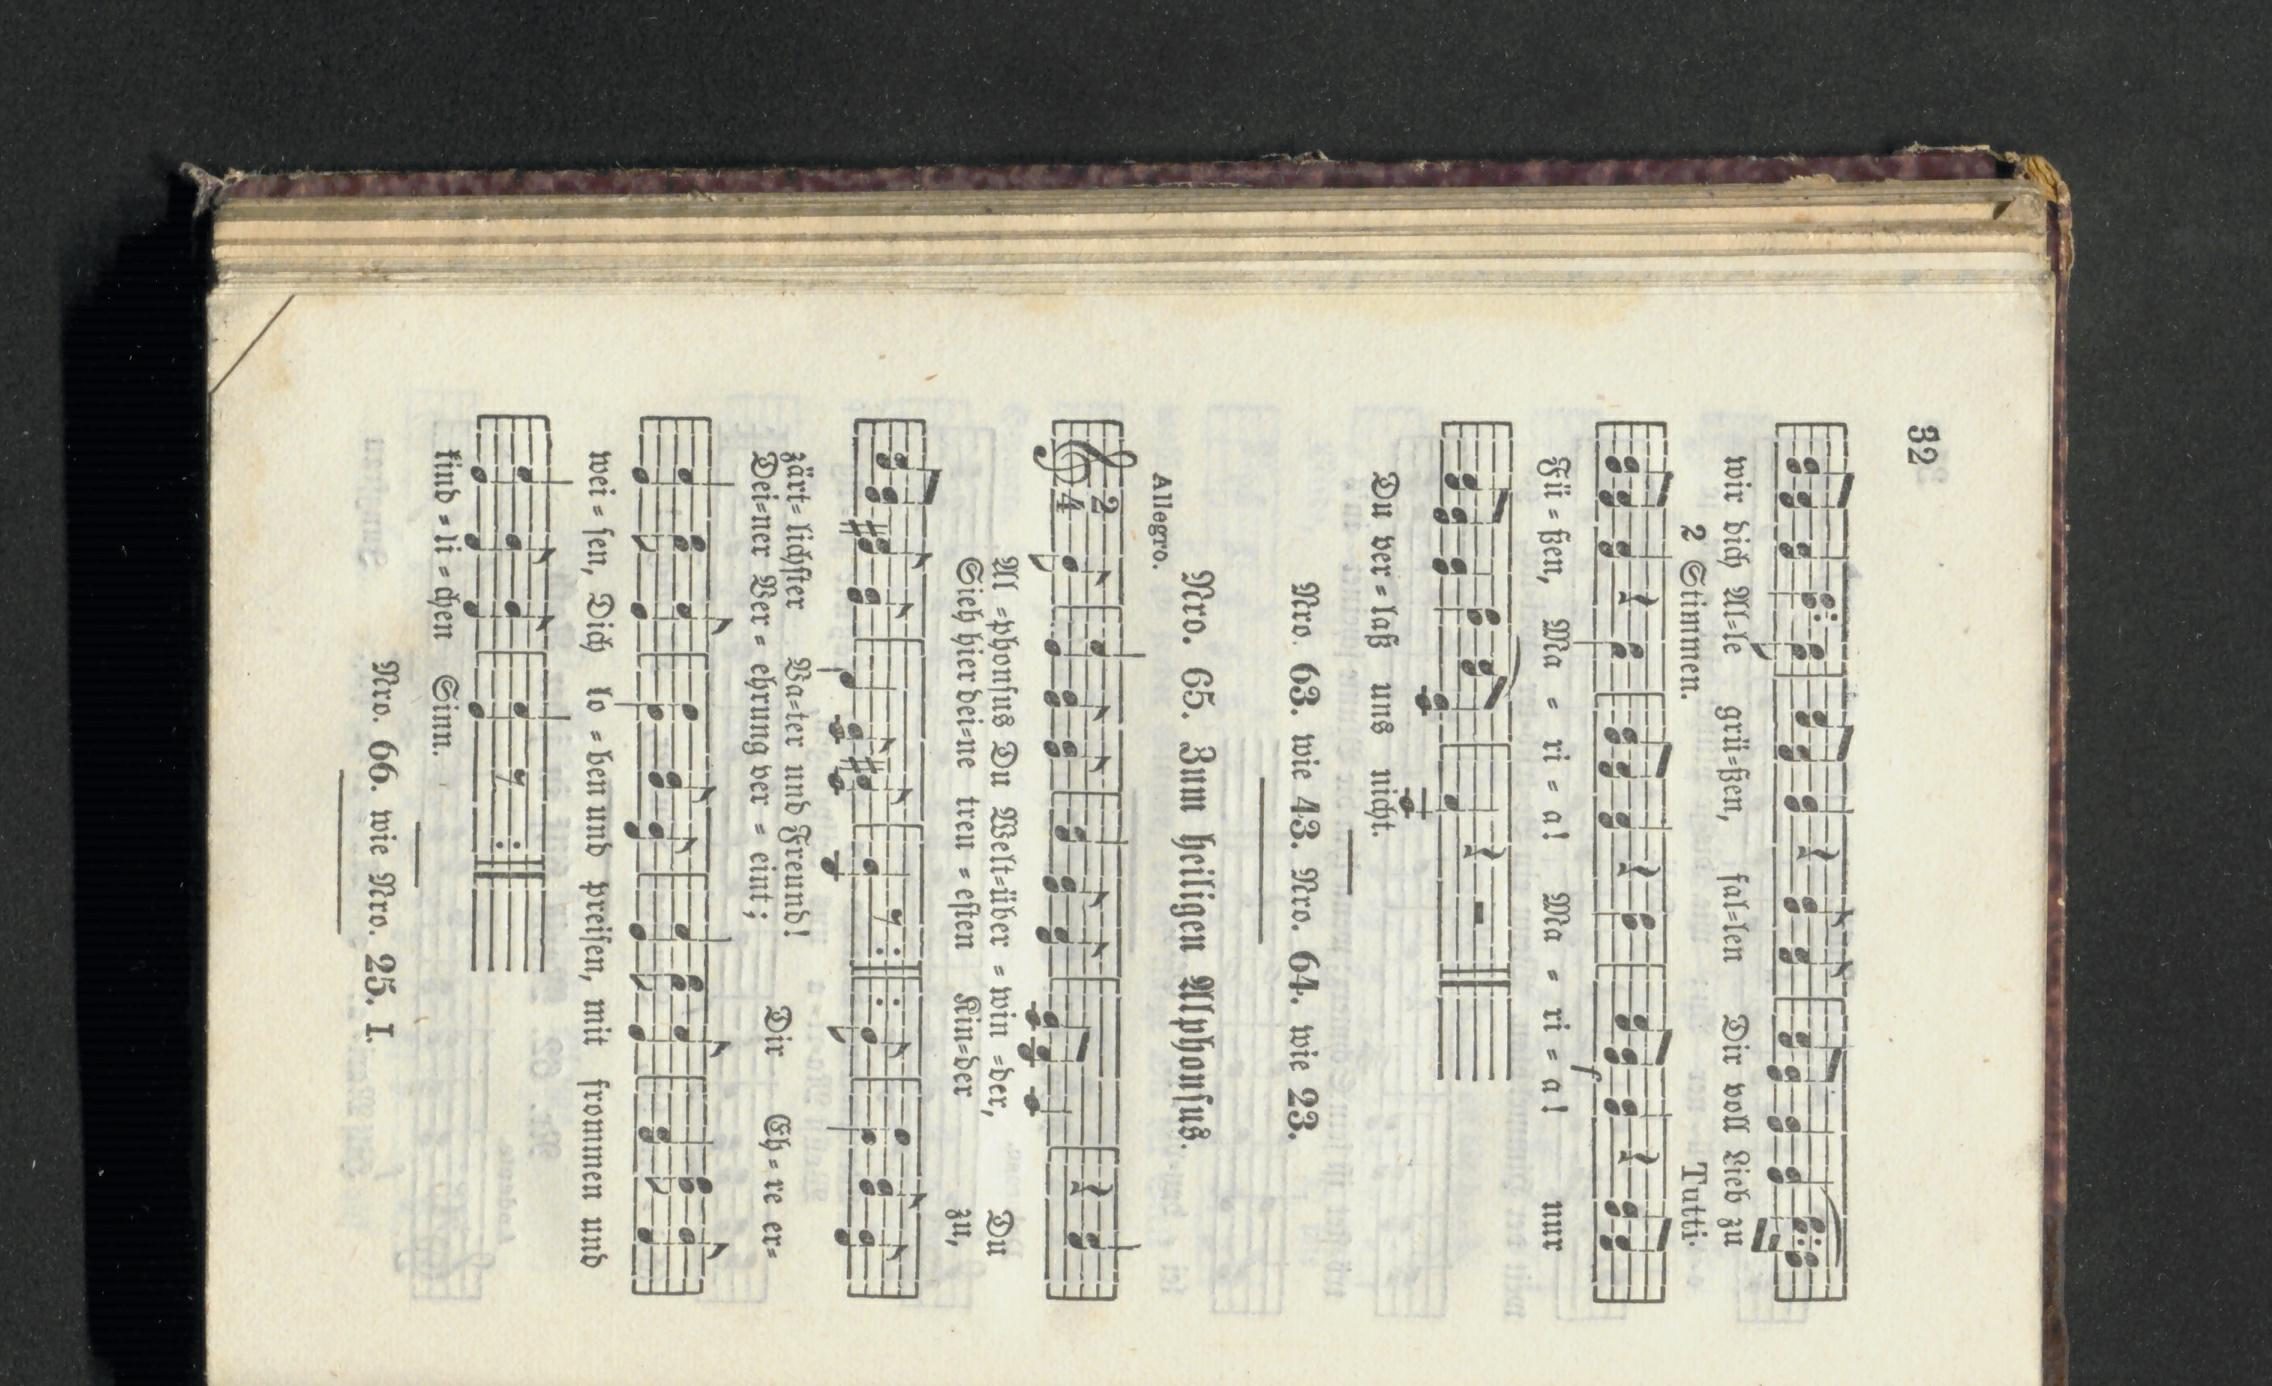 32
wir dich Al=le grü=ßen, fal=len Dir voll Lieb zu
2 Stimmen. Tutti.
Fü = ßen, Ma = ri = a! Ma = ri = a! nur
f
Du ver = laß uns nicht.
Nro. 63. wie 43. Nro. 64. wie 23.
Nro. 65. Zum heiligen Alphonsus.
Allegro.
2
4
Al =phonsus Du Welt=über = win =der, Du
Sieh hier dei=ne treu = esten Kin=der zu,
zärt=lichster Va=ter und Freund! Dir Eh=re er=
Dei=ner Ver= ehrung ver = eint;
wei = sen, Dich lo = ben und preisen, mit frommen und
kind = li = chen Sinn.
Nro. 66. wie Nro. 25. I.